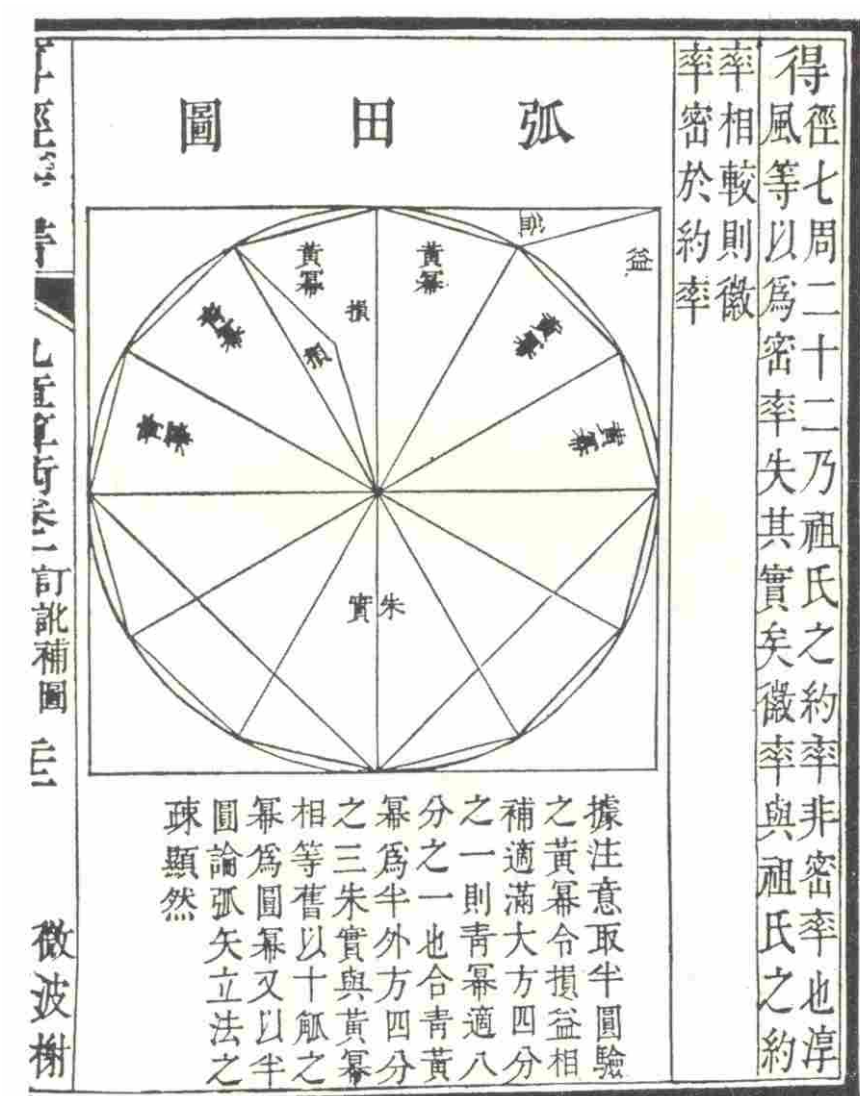 得
徑七周二十二乃祖氏之約率非密率也淳
風等以爲密率失其實矣徽率與祖氏之約
率相較則徽
率密於約率
弧田圖
益
黃冪
黃冪
損
黃冪
朱實
據注意取半圓驗
之黃冪令損益相
補適滿大方四分
之一則青冪適八
分之一也合青黃
冪爲半外方四分
之三朱實與黃冪
相等舊以十觚之
冪爲圓冪又以半
圓論弧矢立法之
疎顯然
九章算術卷一
訂訛補圖
微波榭